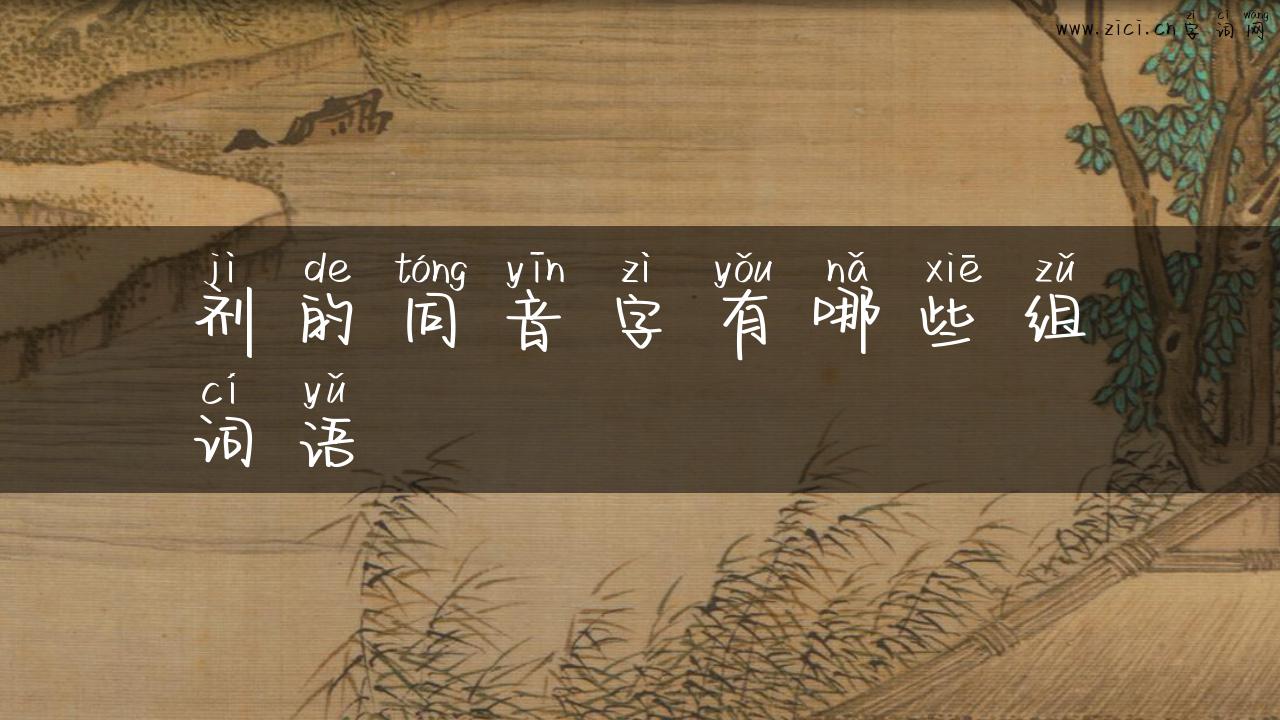 zì cí wǎng
www.zici.cn字词网
jì de tóng yīn zì yǒu nǎ xiē zǔ
剂的同音字有哪些组
cí yǔ
词语